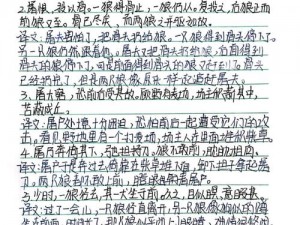 2.屠惧,投以骨。一狼得骨止,一狼仍从。复投之,后狼止而
前狼又至。骨已尽矣,而两狼之并驱如故。
译文:屠夫害怕了,把骨头扔给狼。一只狼得到骨头停下了。
另一只狼仍然跟着他。屠夫又把骨头扔给狼,后面得到
骨头的狼停下了,可是前面得到骨头的狼又赶到了。骨头
已经扔光了,但是两只狼像原来一样一起追赶屠夫。
3.屠大窘,恐前后受其敌。顾野有麦场,场主积薪其中,
苫蔽成丘。
译文:屠户处境十分困迫,恐怕前后一起遭受它们的攻
击。看见野地里有一个打麦场,场主人在里面堆积柴草
4.屠乃奔倚其下,弛担持刀。狼不敢前,眈眈相向。
译文:屠户于是奔过去倚靠在柴草堆下面,卸下担子拿起屠
刀。两只狼都不敢上前,瞪眼朝着屠户。
5.少时,一狼径去,其一犬坐于前。久之,目似瞑,意暇甚。
译文:过了一会儿,一只狼径直离开,另一只狼像狗似的蹲